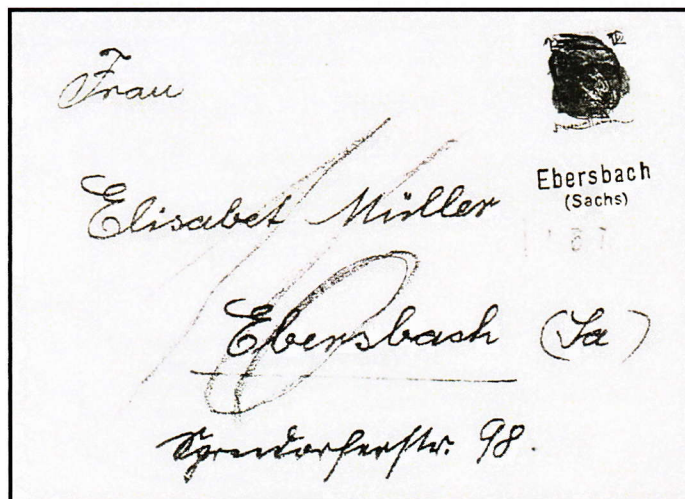 Frau
12 12
Ebersbach
(Sachs)
Elisabet Müller
Ebersbach (Sa)
Spreedorferstr. 98.